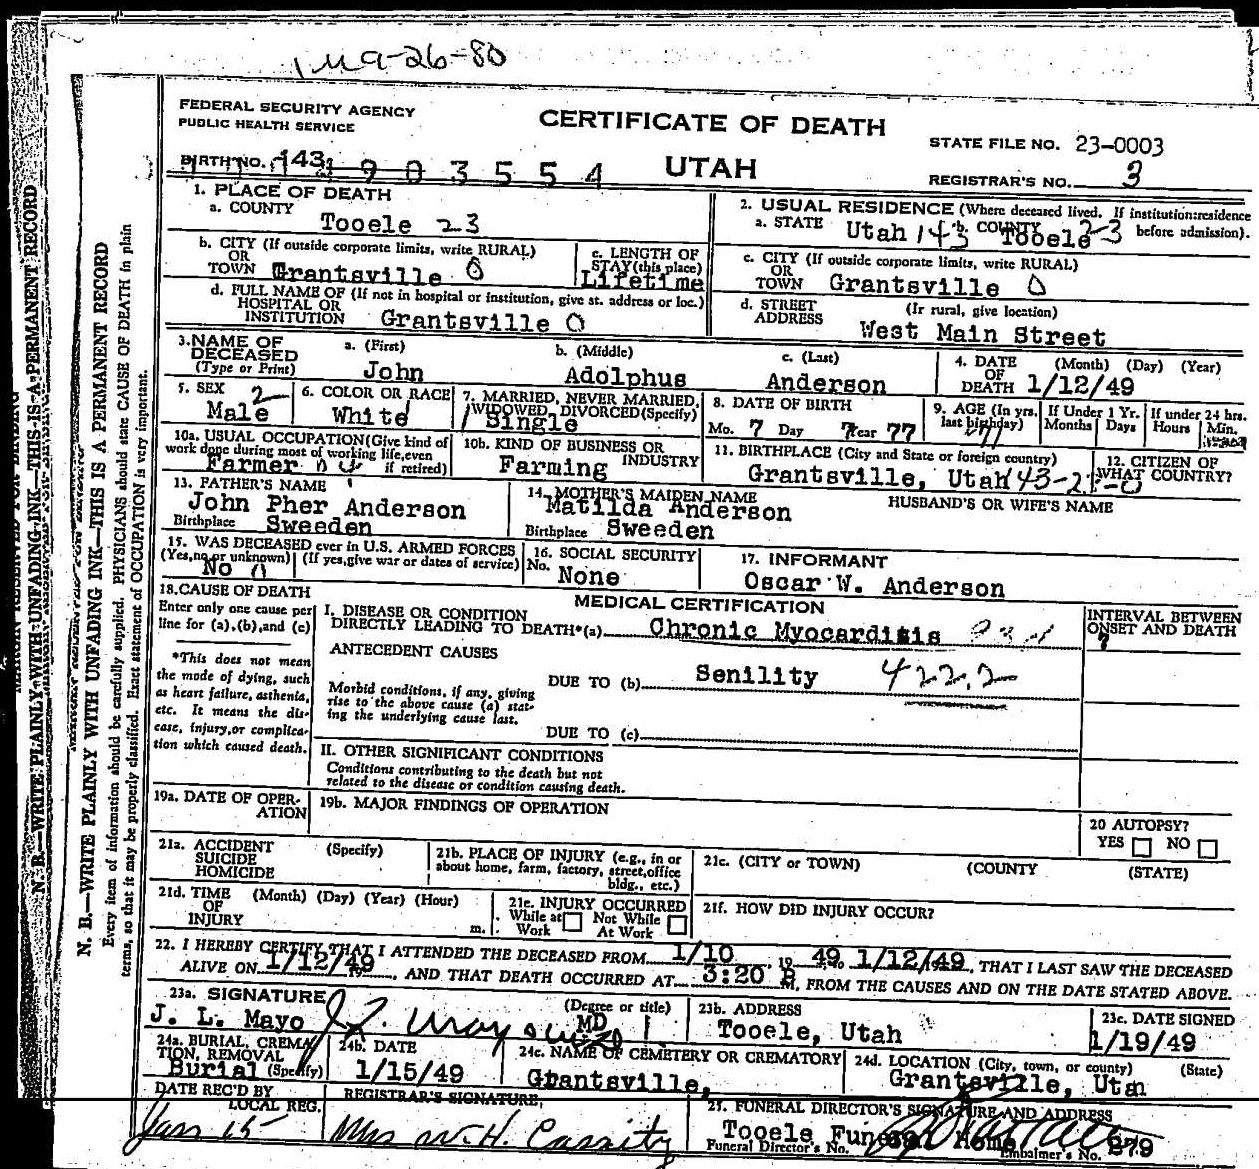 9-26-80
FEDERAL SECURITY AGENCY
PUBLIC HEALTH SERVICE
CERTIFICATE OF DEATH
UTAH
STATE FILE NO. 23-0003
BIRTH NO. 143
REGISTRAR'S NO. 3
1. PLACE OF DEATH
a. COUNTY
Tooele 23
b. CITY (If outside corporate limits, write RURAL)
OR
TOWN Grantsville 0
c. LENGTH OF
STAY (this place)
Lifetime
d. FULL NAME OF (If not in hospital or institution, give st. address or loc.)
HOSPITAL OR
INSTITUTION Grantsville 0
2. USUAL RESIDENCE (Where deceased lived. If institution:residence
before admission).
a. STATE Utah 143 b. COUNTY Tooele 23
c. CITY (If outside corporate limits, write RURAL)
OR
TOWN Grantsville 0
d. STREET (Ir rural, give location)
ADDRESS
West Main Street
3. NAME OF
DECEASED
(Type or Print)
a. (First) b. (Middle) c. (Last)
John Adolphus Anderson
4. DATE (Month) (Day) (Year)
OF
DEATH 1/12/49
5. SEX 2
Male
6. COLOR OR RACE
White
7. MARRIED, NEVER MARRIED,
WIDOWED, DIVORCED(Specify)
Single
8. DATE OF BIRTH
Mo. 7 Day 7 Year 77
9. AGE (In yrs.
last birthday)
If Under 1 Yr.
Months Days
If under 24 hrs.
Hours Min.
10a. USUAL OCCUPATION(Give kind of
work done during most of working life,even
if retired)
Farmer
10b. KIND OF BUSINESS OR
INDUSTRY
Farming
11. BIRTHPLACE (City and State or foreign country)
Grantsville, Utah
12. CITIZEN OF
WHAT COUNTRY?
13. FATHER'S NAME
John Pher Anderson
Birthplace Sweeden
14. MOTHER'S MAIDEN NAME
Matilda Anderson
Birthplace Sweeden
HUSBAND'S OR WIFE'S NAME
15. WAS DECEASED ever in U.S. ARMED FORCES
(Yes,no,or unknown) (If yes,give war or dates of service)
No 0
16. SOCIAL SECURITY
No.
None
17. INFORMANT
Oscar W. Anderson
18.CAUSE OF DEATH
Enter only one cause per
line for (a),(b),and (c)
*This does not mean
the mode of dying, such
as heart failure, asthenia,
etc. It means the dis-
ease, injury,or complica-
tion which caused death.
MEDICAL CERTIFICATION
I. DISEASE OR CONDITION
DIRECTLY LEADING TO DEATH*(a) Chronic Myocarditis
ANTECEDENT CAUSES
DUE TO (b) Senility 422.2
Morbid conditions, if any, giving
rise to the above cause (a) stat-
ing the underlying cause last.
DUE TO (c)
II. OTHER SIGNIFICANT CONDITIONS
Conditions contributing to the death but not
related to the disease or condition causing death.
INTERVAL BETWEEN
ONSET AND DEATH
?
19a. DATE OF OPER-
ATION
19b. MAJOR FINDINGS OF OPERATION
20 AUTOPSY?
YES NO
21a. ACCIDENT (Specify)
SUICIDE
HOMICIDE
21b. PLACE OF INJURY (e.g., in or
about home, farm, factory, street,office
bldg., etc.)
21c. (CITY or TOWN) (COUNTY) (STATE)
21d. TIME (Month) (Day) (Year) (Hour)
OF
INJURY m.
21e. INJURY OCCURRED
While at Not While
Work At Work
21f. HOW DID INJURY OCCUR?
22. I HEREBY CERTIFY THAT I ATTENDED THE DECEASED FROM 1/10 49 1/12/49, THAT I LAST SAW THE DECEASED
ALIVE ON 1/12/49, AND THAT DEATH OCCURRED AT 3:20 P M, FROM THE CAUSES AND ON THE DATE STATED ABOVE.
23a. SIGNATURE (Degree or title)
J. L. Mayo MD
23b. ADDRESS
Tooele, Utah
23c. DATE SIGNED
1/19/49
24a. BURIAL, CREMA-
TION, REMOVAL
Burial (Specify)
24b. DATE
1/15/49
24c. NAME OF CEMETERY OR CREMATORY
Grantsville,
24d. LOCATION (City, town, or county) (State)
Grantsville, Utah
DATE REC'D BY
LOCAL REG.
Jan 15
REGISTRAR'S SIGNATURE,
Mrs W. H. Cassity
FUNERAL DIRECTOR'S SIGNATURE AND ADDRESS
Tooele Funeral Home
Funeral Director's No. Embalmer's No. 379
N. B.—WRITE PLAINLY WITH UNFADING INK—THIS IS A PERMANENT RECORD
N. B.—WRITE PLAINLY WITH UNFADING INK—THIS IS A PERMANENT RECORD
Every item of information should be carefully supplied. PHYSICIANS should state CAUSE OF DEATH in plain
terms, so that it may be properly classified. Exact statement of OCCUPATION is very important.